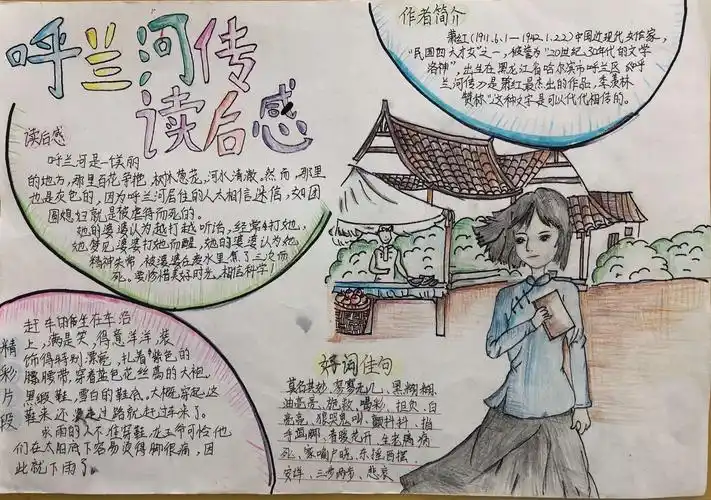 呼兰河传
读后感
作者简介
萧红(1911.6.1—1942.1.22)中国近现代女作家,
"民国四大才女"之一,被誉为"20世纪30年代的文学
洛神",出生在黑龙江省哈尔滨市呼兰区
兰河传》是萧红最杰出的作品,李羡林
赞称"这种文字是可以代代相传的。
读后感
呼兰河是一美丽
的地方,那里百花争艳,树木葱茏,河水清澈。然而,那里
也是灰色的,因为呼兰河居住的人太相信迷信,如团
圆媳妇就是被虐待而死的。
她的婆婆认为越打越听话,经常打她,
她梦见婆婆打她而醒,她的婆婆认为她
精神失常,被婆婆在水里煮了三次而
死。要珍惜美好时光,相信科学!
精彩片段
赶车的坐在车沿
上,满是笑,得意洋洋,装
饰得特别漂亮,扎着紫色的
腰带,穿着蓝色花丝葛的大袍,
黑缎鞋,雪白的鞋底,大概穿起这
鞋来还没走过路就赶过车来了。
求雨的人不准穿鞋,龙王爷可怜他
们在太阳底下烫得脚很痛,因
此就下雨了
好词佳句
莫名其妙、寥寥无几、黑糊糊、
油亮亮、抱歉、喝彩、担负、白
亮亮、狼哭鬼叫、颤抖抖、拍
手画脚、春暖花开、生老病
死、家喻户晓、东摇西摆、
安详、三步两步、悲哀